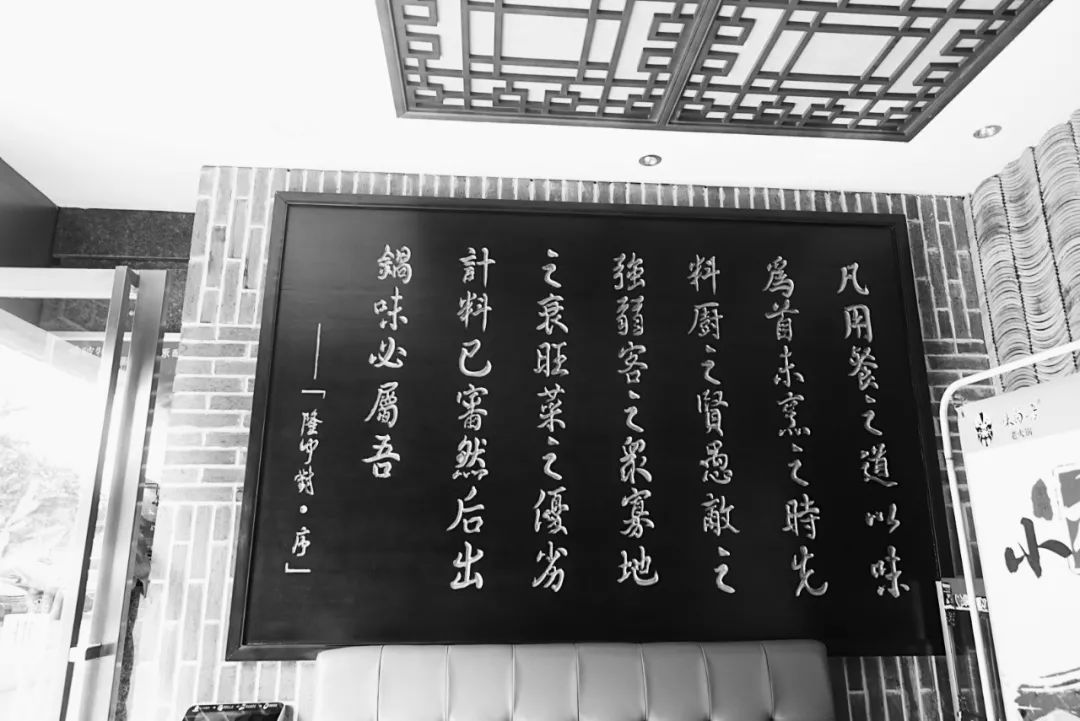 凡用餐之道以味
為首未烹之時先
料厨之賢愚敵之
強弱客之眾寡地
之衰旺菜之優劣
計料已審然后出
鍋味必屬吾
——「隆中對·序」
老火锅
小